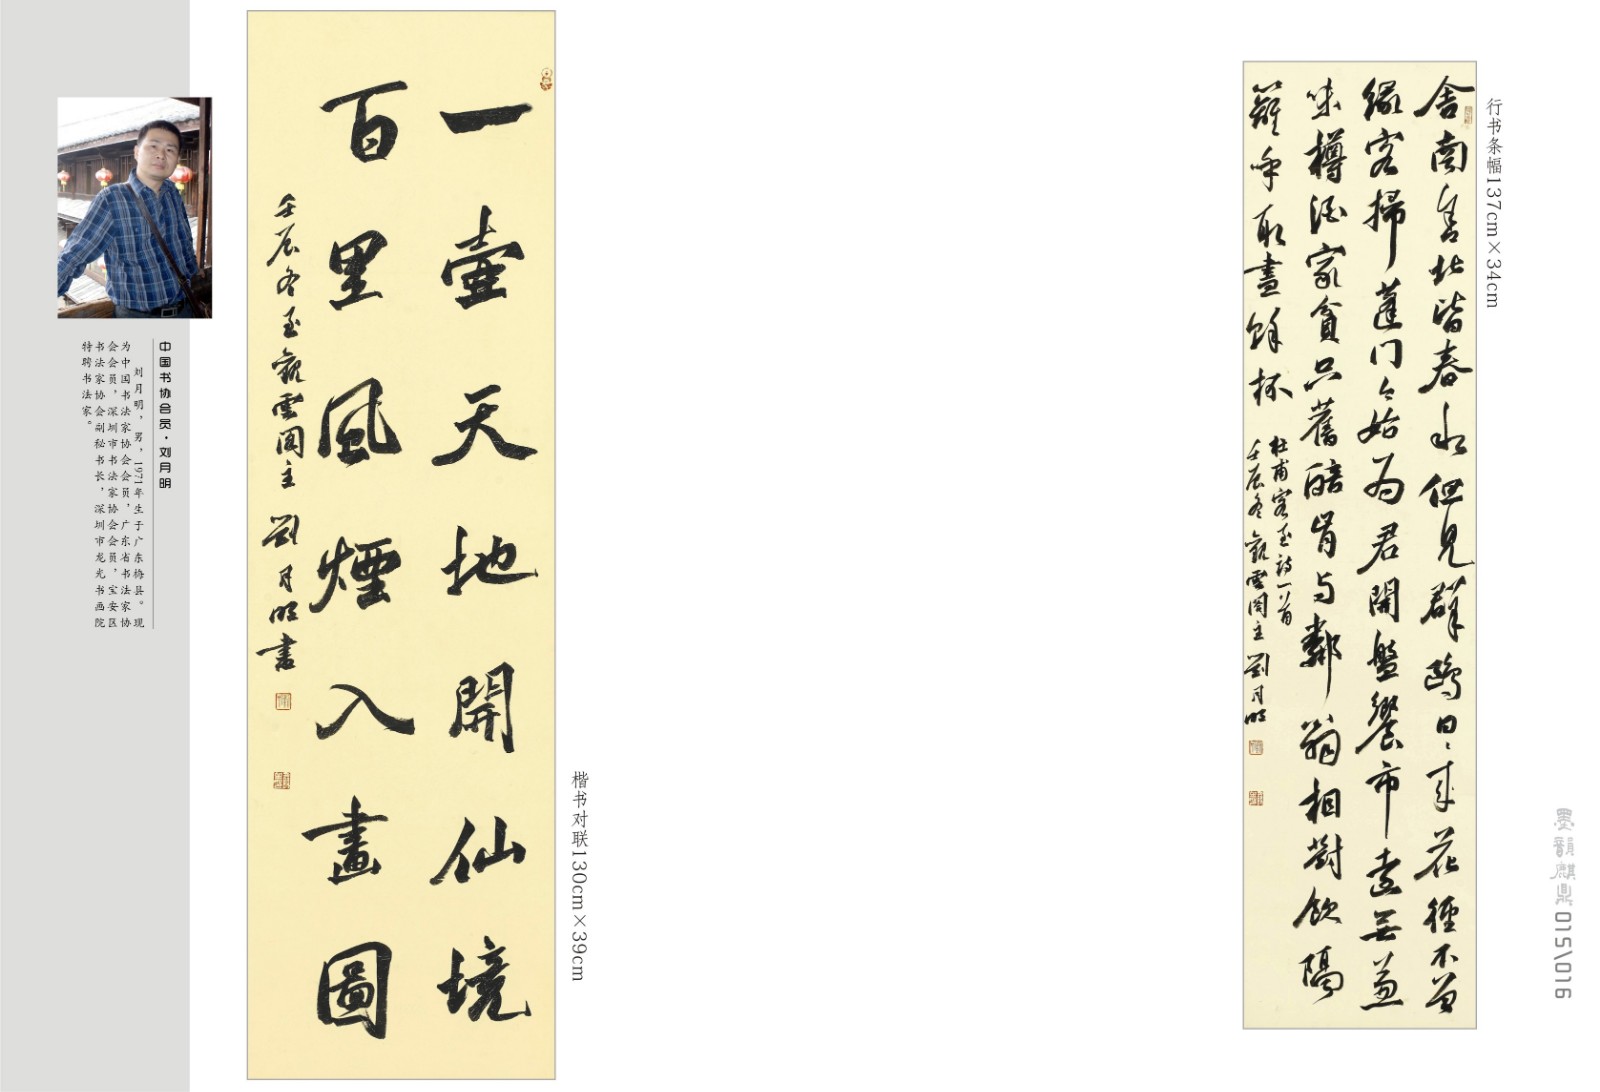 中国书协会员·刘月明
刘月明，男，1971年生于广东梅县。现
为中国书法家协会会员，广东省书法家协
会会员，深圳市书法家协会会员，宝安区
书法家协会副秘书长，深圳市龙光书画院
特聘书法家。
一壺天地開仙境
百里風煙入畫圖
壬辰冬至觀雲閣主 劉月明書
楷书对联130cm×39cm
行书条幅137cm×34cm
舍南舍北皆春水但見群鷗日々来花徑不曽
緣客掃蓬門今始為君開盤飧市遠無兼
味樽酒家貧只舊醅肯与鄰翁相對飲隔
籬呼取盡餘杯
杜甫客至詩一首
壬辰冬觀雲閣主劉月明
墨韻麒鼎015\016